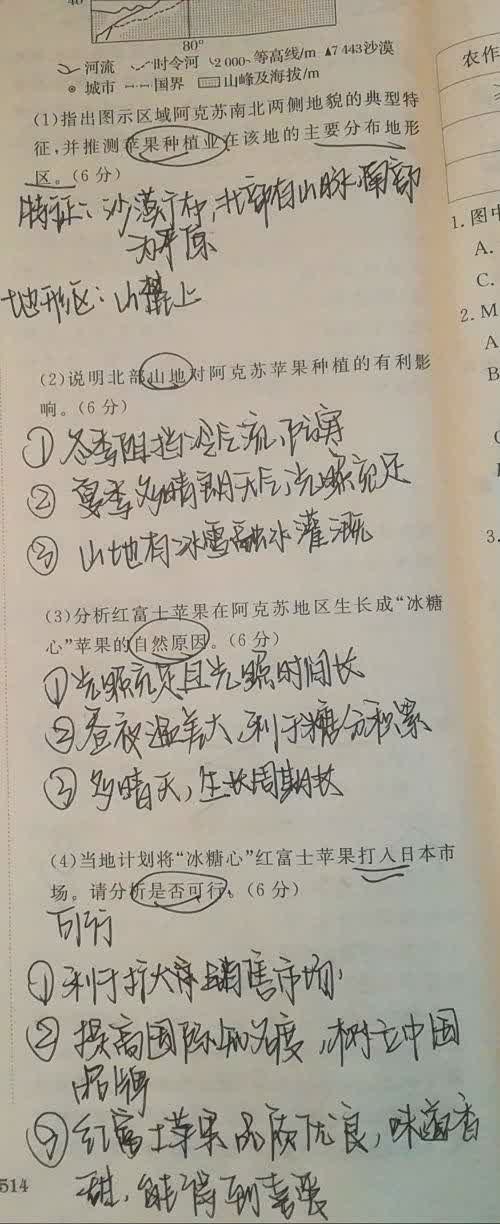 40
80°
河流 时令河 2 000 等高线/m ▲7 443沙漠
城市 国界 山峰及海拔/m
农作
(1)指出图示区域阿克苏南北两侧地貌的典型特
征,并推测苹果种植业在该地的主要分布地形
区。(6分)
特征:沙漠广布,北部有山脉,南部
为平原
地形区:山麓上
1.图中
A.
C.
2. M
A
B
(2)说明北部山地对阿克苏苹果种植的有利影
响。(6分)
①冬季阻挡冷气流,
②夏季多晴朗天气,光照充足
③山地有冰雪融水灌溉
3.
(3)分析红富士苹果在阿克苏地区生长成“冰糖
心”苹果的自然原因。(6分)
①光照充足且光照时间长
②昼夜温差大,利于糖分积累
③多晴天,生长周期长
(4)当地计划将“冰糖心”红富士苹果打入日本市
场。请分析是否可行。(6分)
可行
①利于扩大销售市场,
②提高国际知名度,树立中国
品牌
③红富士苹果品质优良,味道香
甜,能得到喜爱
514